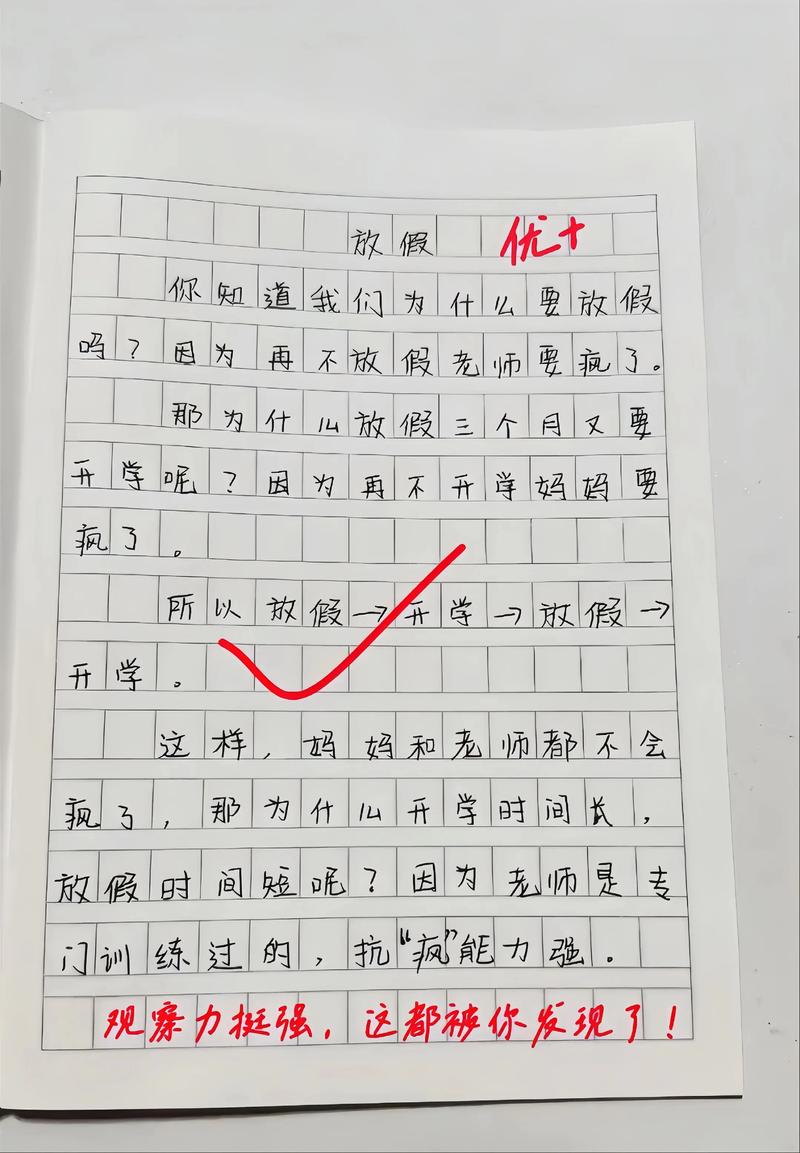 放假 优+
你知道我们为什么要放假
吗？因为再不放假老师要疯了。
那为什么放假三个月又要
开学呢？因为再不开学妈妈要
疯了。
所以放假→开学→放假→
开学。
这样，妈妈和老师都不会
疯了，那为什么开学时间长，
放假时间短呢？因为老师是专
门训练过的，抗“疯”能力强。
观察力挺强，这都被你发现了！